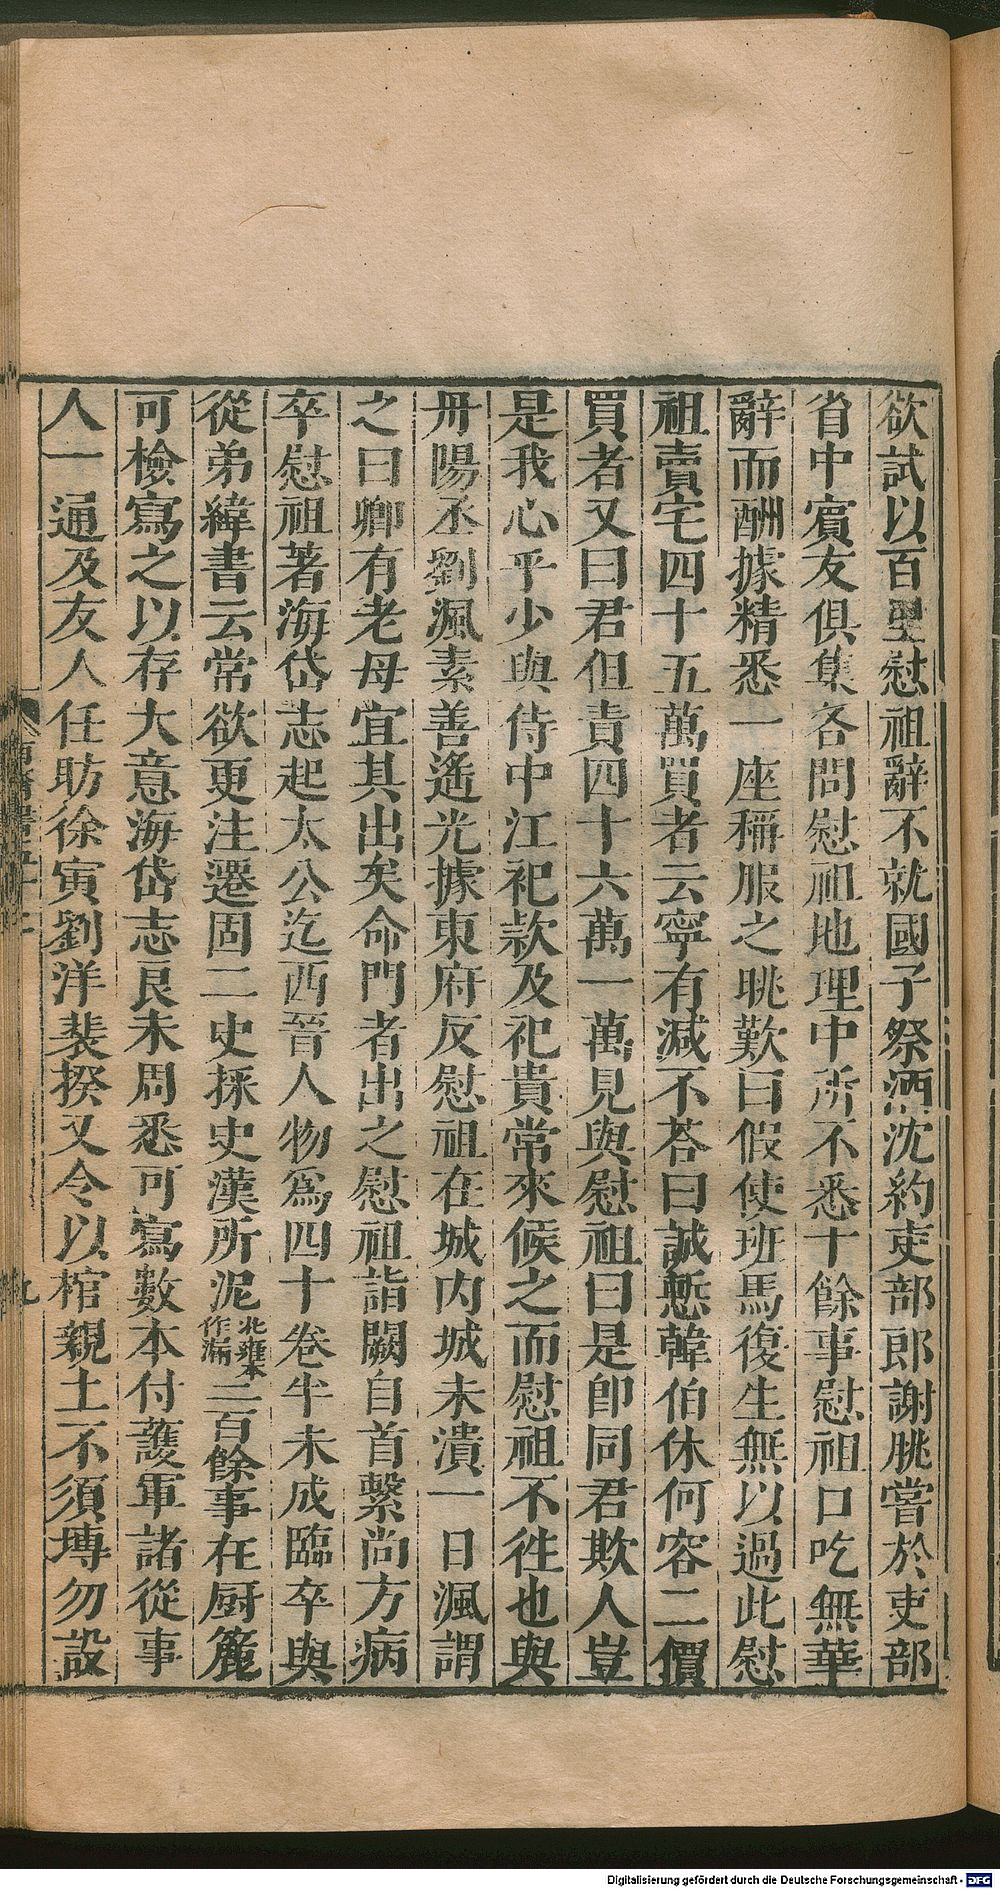 欲試以百里慰祖辭不就國子祭酒沈約吏部郎謝朓嘗於吏部
省中賓友俱集各問慰祖地理中所不悉十餘事慰祖口吃無華
辭而酬據精悉一座稱服之眺歎曰假使班馬復生無以過此慰
祖賣宅四十五萬買者云寧有減不荅曰誠慙韓伯休何容二價
買者又曰君但責四十六萬一萬見與慰祖曰是卽同君欺人豈
是我心乎少與侍中江祀款及祀貴常來候之而慰祖不往也與
丹陽丞劉渢素善遙光據東府反慰祖在城內城未潰一日渢謂
之曰卿有老母宜其出矣命門者出之慰祖詣闕自首繫尚方病
卒慰祖著海岱志起太公迄西晉人物爲四十卷半未成臨卒與
從弟緯書云常欲更注遷固二史採史漢所泥北雍本作漏二百餘事在厨簏
可檢寫之以存大意海岱志良未周悉可寫數本付護軍諸從事
人一通及友人任昉徐寅劉洋裴揆又令以棺親土不須塼勿設
南齊書五十二
九
Digitalisierung gefördert durch die Deutsche Forschungsgemeinschaft - DFG